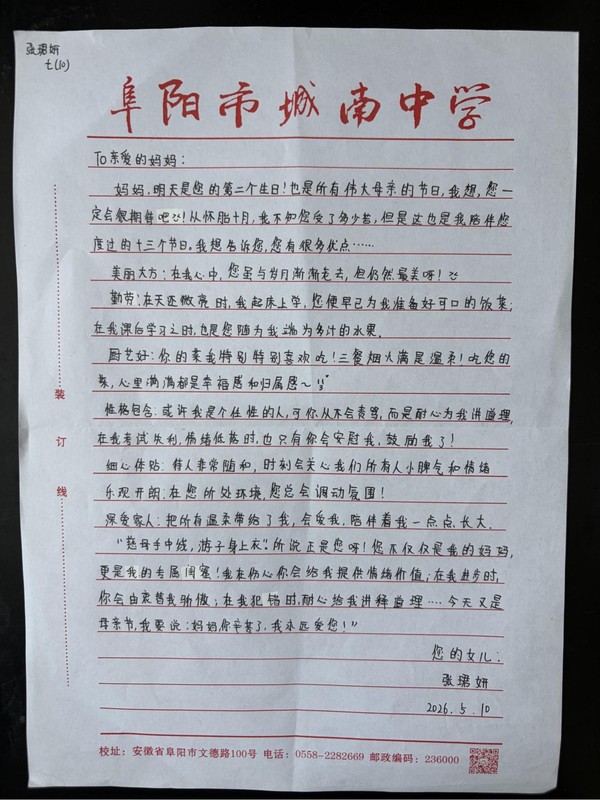 张珺妍
七(10)
阜阳市城南中学
To亲爱的妈妈：
妈妈，明天是您的第二个生日！也是所有伟大母亲的节日，我想，您一
定会很期待吧！从怀胎十月，我不知您受了多少苦，但是这也是我陪伴您
度过的十三个节日。我想告诉您，您有很多优点……
美丽大方：在我心中，您虽与岁月渐渐老去，但仍然最美呀！
勤劳：在天还微亮时，我起床上学，您便早已为我准备好可口的饭菜；
在我课后学习之时，也是您随为我端为多汁的水果。
厨艺好：你的素我特别特别喜欢吃！三餐烟火满是温柔！吃您的
菜，心里满满都是幸福感和归属感~
性格包容：或许我是个任性的人，可你从不会责骂，而是耐心为我讲道理，
在我考试失利，情绪低落时，也只有你会安慰我，鼓励我了！
细心体贴：待人非常随和，时刻会关心我们所有人小脾气和情绪
乐观开朗：在您所处环境，您总会调动氛围！
深爱家人：把所有温柔带给了我，会爱我，陪伴着我一点点长大。
“慈母手中线，游子身上衣”所说正是您呀！您不仅仅是我的妈妈，
更是我的专属闺蜜！我在伤心你会给我提供情绪价值；在我进步时，
你会由衷替我骄傲；在我犯错时，耐心给我讲释道理……今天又是
母亲节，我要说：妈妈你辛苦了，我永远爱您！”
您的女儿：
张珺妍
2026.5.10
装
订
线
校址：安徽省阜阳市文德路100号 电话：0558-2282669 邮政编码：236000